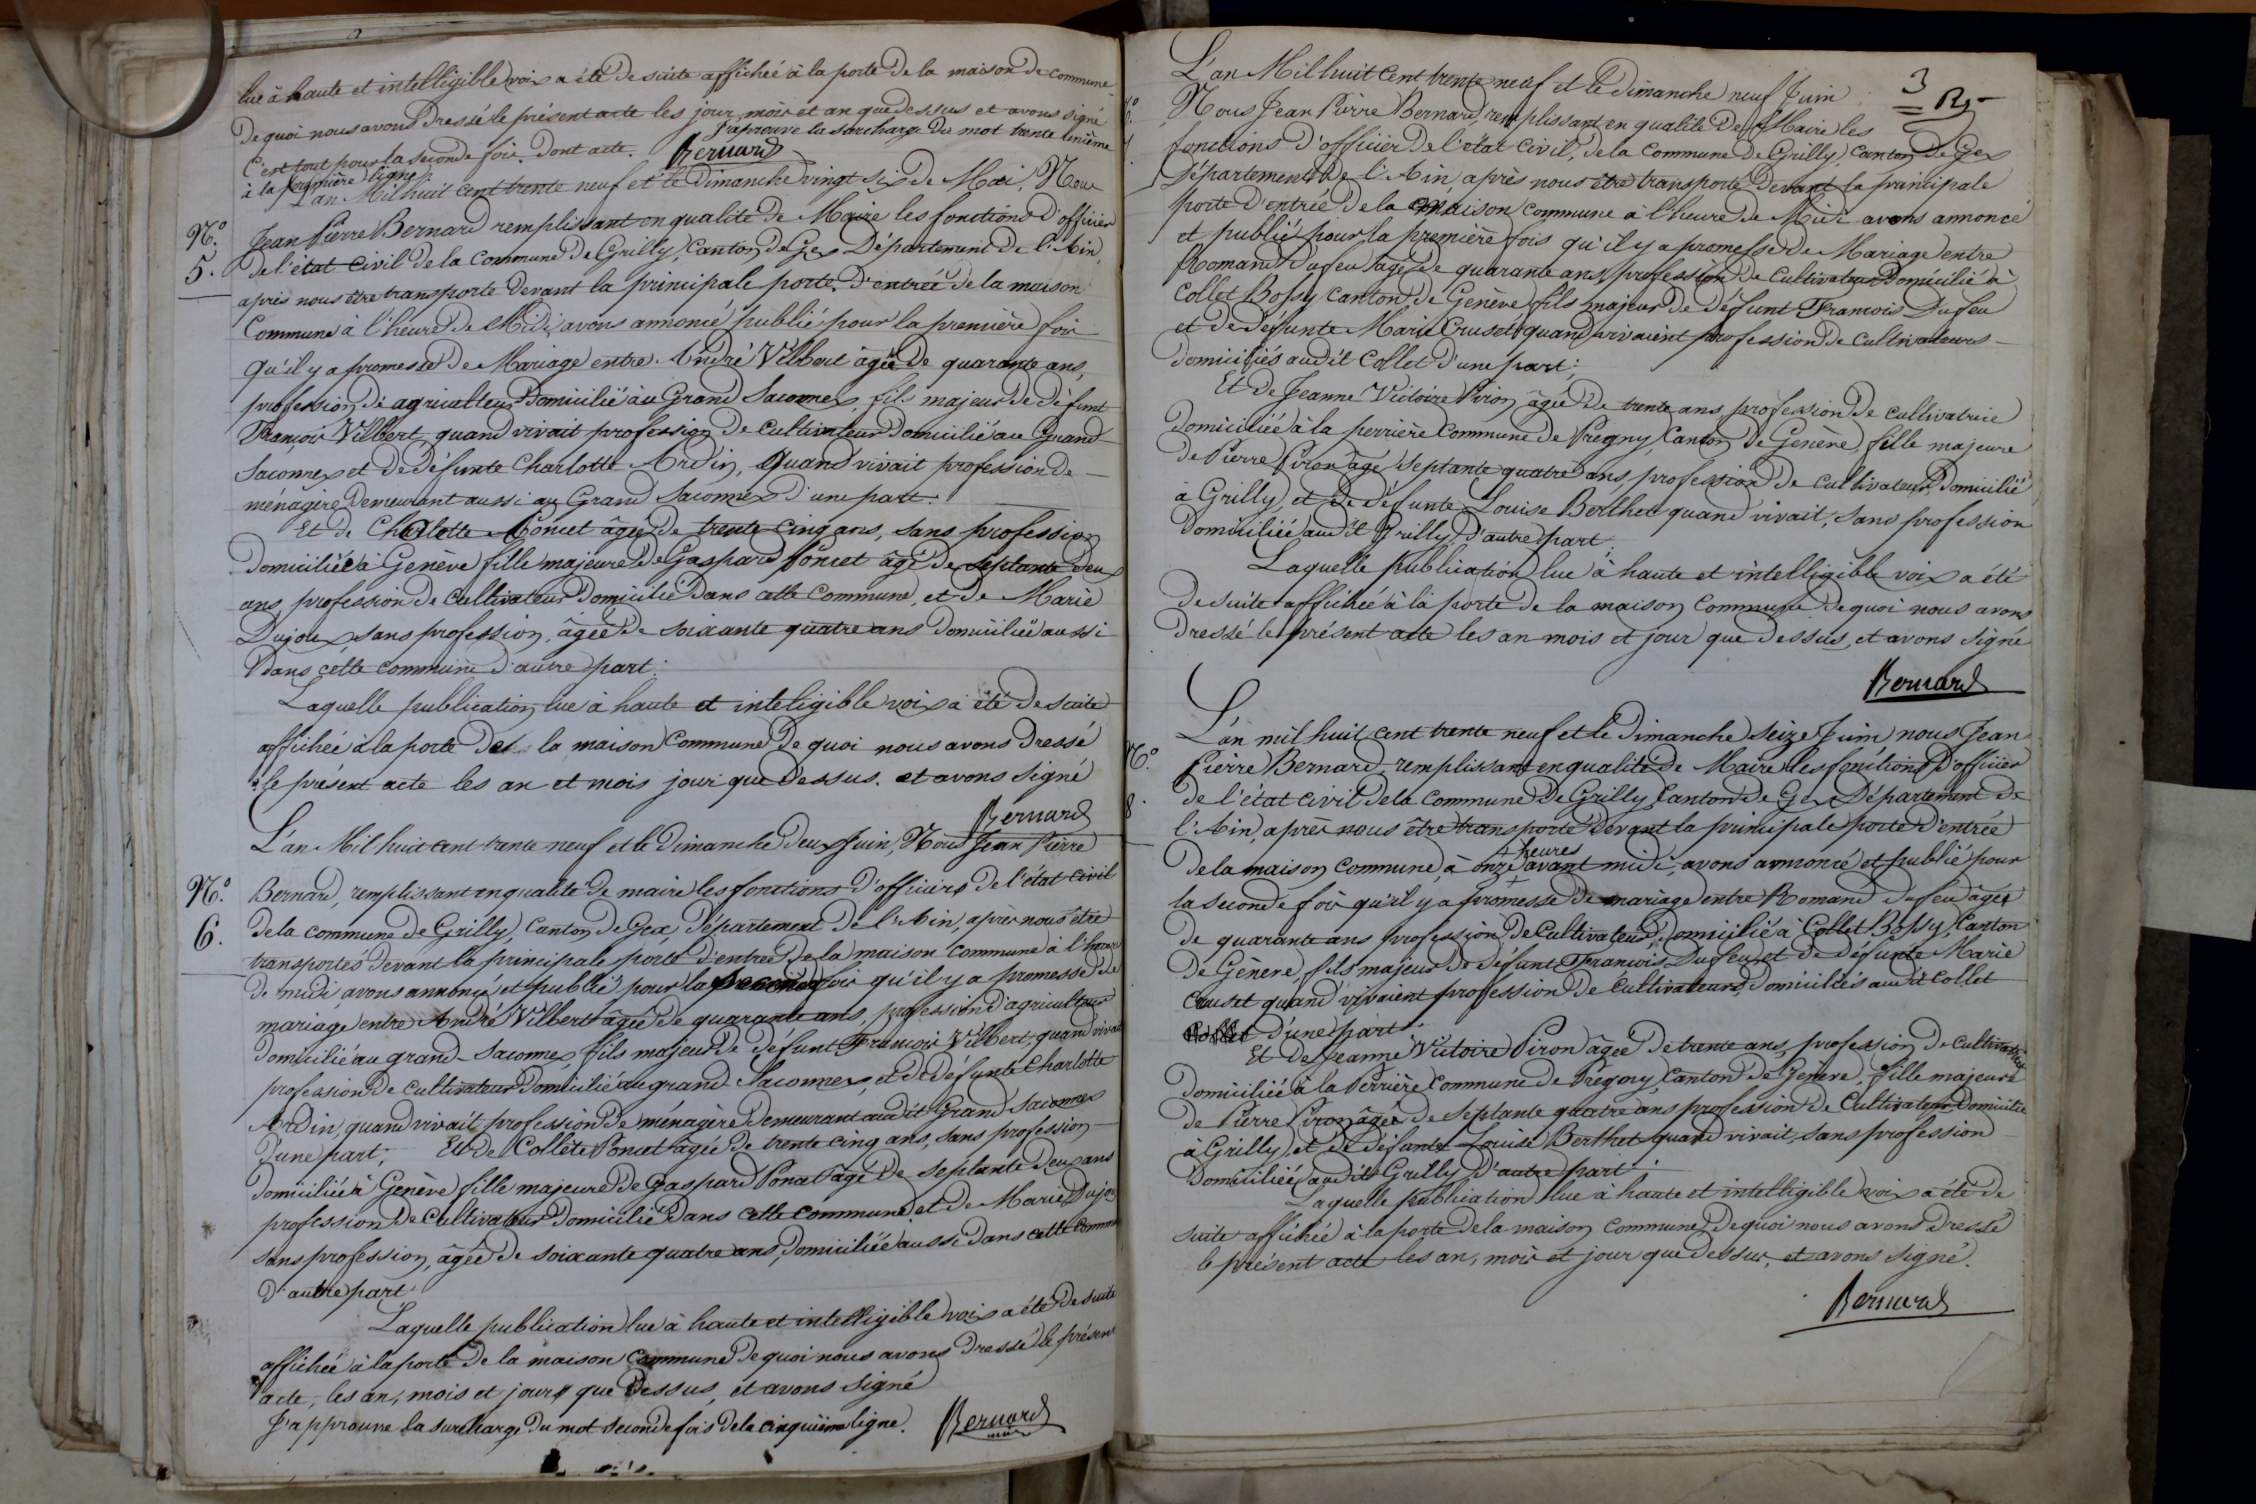 lue à haute et intelligible voix a été de suite affichée à la porte de la maison de commune
De quoi nous avons Dressé le présent acte les jour, mois et an que dessus et avons signé
J'aprouve la surcharge du mot trente
C'est tout pour la seconde fois. Dont acte. Bernard
à la première ligne
L'an Mil huit cent trente neuf et le Dimanche vingt six de Mai, Nous
N.º 5.
Jean Pierre Bernard remplissant en qualité de Maire les fonctions d'officier
de l'état Civil de la Commune de Grilly, Canton de Gex Département de l'Ain,
après nous être transporté Devant la principale porte d'entrée de la maison
Commune à l'heure de Midi, avons annoncé publié pour la première fois
Qu'il y a promesse de Mariage entre André Vilbert âgée de quarante ans,
profession de agriculteur Domicilié au Grand Saconnex, fils majeur de défunt
François Vilbert quand vivait profession de Cultivateur Domicilié au Grand
Saconnex et de défunte Charlotte Ardin, Quand vivait profession de
ménagère Demeurant aussi au Grand Saconnex d'une part.
Et de Charlotte Poncet âgée de trente cinq ans, sans profession
Domiciliée à Genève fille majeure de Gaspard Poncet âgé de septante deux
ans, profession de Cultivateur Domicilié Dans cette Commune, et de Marie
Dujoux sans profession, âgée de soixante quatre ans Domiciliée aussi
Dans cette commune d'autre part.
Laquelle publication lue à haute et inteligible voix a été de suite
affichée à la porte de la maison Commune De quoi nous avons Dressé
le présent acte les an et mois jour que Dessus. et avons signé
Bernard
L'an Mil huit cent trente neuf et le Dimanche deux Juin, Nous Jean Pierre
N.º 6.
Bernard, remplissant en qualité de maire les fonctions d'officier de l'état civil
de la commune de Grilly, Canton de Gex, département de l'Ain, après nous être
transportés devant la principale porte d'entrée de la maison commune à l'heure
de midi avons annoncé et publié pour la seconde fois qu'il y a promesse de
mariage entre André Vilbert âgée de quarante ans, profession d'agriculteur
Domicilié au grand Saconnex, fils majeur de défunt François Vilbert, quand vivait
profession de Cultivateur Domicilié au grand Saconnex, et de défunte Charlotte
Ardin, quand vivait profession de ménagère Demeurant audit Grand Saconnex
D'une part, Et de Collete Poncet âgée de trente cinq ans, sans profession
Domiciliée à Genève fille majeure de Gaspard Poncet âgé de septante deux ans
profession de Cultivateur Domicilié Dans cette commune et de Marie Dujoux
sans profession, âgée de soixante quatre ans, Domiciliée aussi Dans cette Commune
d'autre part.
Laquelle publication lue à haute et intelligible voix a été de suite
affichée à la porte de la maison commune De quoi nous avons Dressé le présent
acte, les an, mois et jour que Dessus, et avons signé
J'approuve la surcharge du mot seconde fois de la cinquième ligne. Bernard
3
L'an Mil huit Cent trente neuf et le Dimanche neuf Juin
Nous Jean Pierre Bernard, remplissant en qualité de Maire les
fonctions d'officier de l'état Civil, de la Commune de Grilly, Canton de Gex
Département de l'Ain, après nous être transporté Devant la principale
porte d'entrée de la maison commune à l'heure de Midi avons annoncé
et publié pour la première fois qu'il y a promesse de Mariage entre
Romand Dufeu âgé de quarante ans, profession de Cultivateur Domicilié à
Collet Bossy Canton de Genève fils majeur de défunt François Dufeu
et de défunte Marie Cruset quand vivaient profession de cultivateurs
domiciliés audit Collet d'une part;
Et de Jeanne Victoire Piron, âgée de trente ans, profession de cultivatrice
Domiciliée à la perrière Commune de Pregny, Canton de Genève, fille majeure
de Pierre Piron âgé septante quatre ans, profession de cultivateur, Domicilié
à Grilly, et de défunte Louise Berthet quand vivait, sans profession
Domiciliée audit Grilly, d'autre part.
Laquelle publication lue à haute et intelligible voix a été
de suite affichée à la porte de la maison Commune De quoi nous avons
dressé le présent acte les an mois et jour que dessus, et avons signé
Bernard
L'an mil huit cent trente neuf et le Dimanche seize Juin nous Jean
N.º 8.
Pierre Bernard, remplissant en qualité de Maire les fonctions d'officier
de l'état civil de la commune de Grilly, Canton de Gex Département de
l'Ain, après nous être transporté devant la principale porte d'entrée
heures
De la maison commune, à onze avant midi, avons annoncé et publié pour
la seconde fois qu'il y a promesse de mariage entre Romand Dufeu âgée
de quarante ans profession de Cultivateur, Domicilié à Collet Bossy, Canton
de Génève, fils majeur de défunt François Dufeu, et de défunte Marie
Cruset quand vivaient profession de Cultivateurs, domiciliés audit Collet
d'une part.
Et de Jeanne Victoire Piron âgée de trente ans, profession de Cultivatrice
Domiciliée à la Perrière Commune de Prégny, Canton de Genève, fille majeure
de Pierre Piron âgée de septante quatre ans profession de Cultivateur Domicilié
à Grilly, et de défunte Louise Berthet quand vivait, sans profession
Domiciliée audit Grilly D'autre part.
Laquelle publication lue à haute et intelligible voix a été de
suite affichée à la porte de la maison commune De quoi nous avons dressé
le présent acte les an, mois et jour que dessus, et avons signé.
Bernard